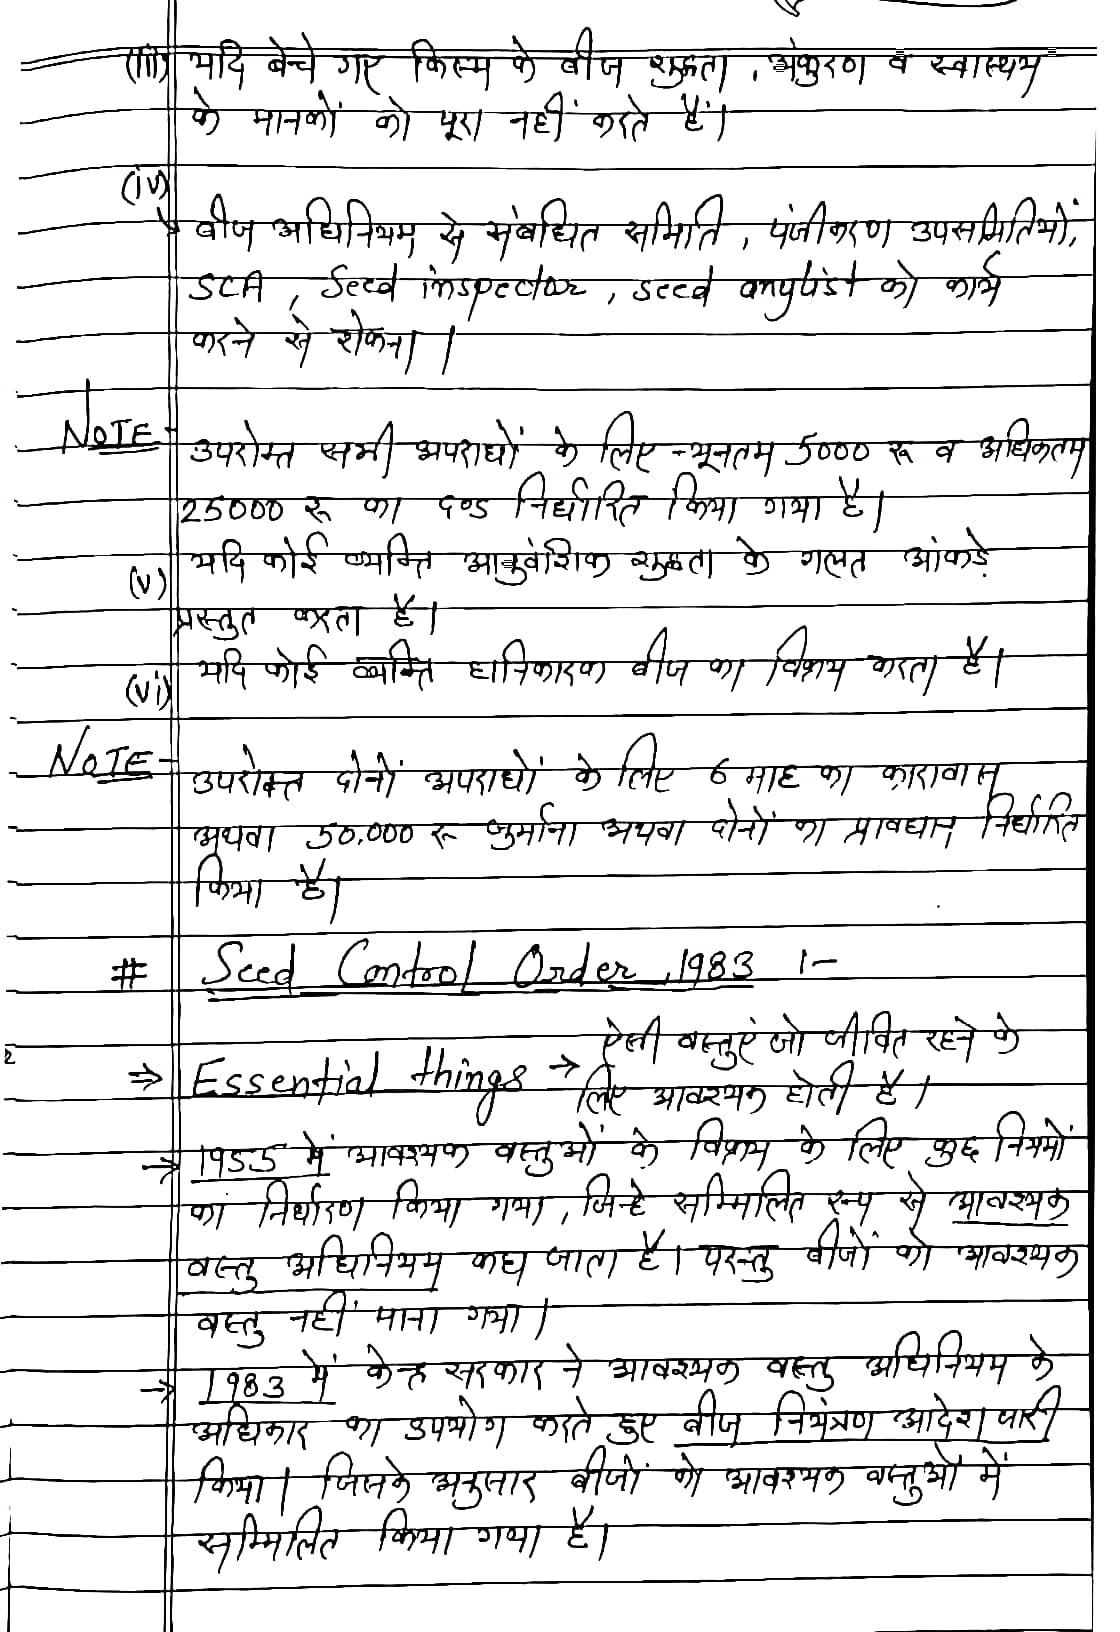 (iii) यदि बेचे गए किस्म के बीज शुद्धता, अंकुरण व स्वास्थय
के मानकों को पूरा नहीं करते हैं।
(iv)
बीज अधिनियम से संबधित समिति, पंजीकरण उपसमितियों,
SCA, Seed inspector, seed anylist को कार्य
करने से रोकना।
NOTE- उपरोक्त सभी अपराधों के लिए न्यूनतम 5000 रू व अधिकतम
25000 रू का दण्ड निर्धारित किया गया है।
(v) यदि कोई व्यक्ति आनुवंशिक शुद्धता के गलत आंकड़े
प्रस्तुत करता है।
(vi) यदि कोई व्यक्ति हानिकारक बीज का विक्रय करता है।
NOTE- उपरोक्त दोनों अपराधों के लिए 6 माह का कारावास
अथवा 50,000 रू जुर्माना अथवा दोनों का प्रावधान निर्धारित
किया है।
# Seed Control Order, 1983 :-
ऐसी वस्तुएं जो जीवित रहने के
⇒ Essential things → लिए आवश्यक होती है।
→ 1955 में आवश्यक वस्तुओं के विक्रय के लिए कुछ नियमों
का निर्धारण किया गया, जिन्हे सम्मिलित रूप से आवश्यक
वस्तु अधिनियम कहा जाता है। परन्तु बीजों को आवश्यक
वस्तु नहीं माना गया।
→ 1983 में केन्द्र सरकार ने आवश्यक वस्तु अधिनियम के
अधिकार का उपयोग करते हुए बीज नियंत्रण आदेश जारी
किया। जिसके अनुसार बीजों को आवश्यक वस्तुओं में
सम्मिलित किया गया है।